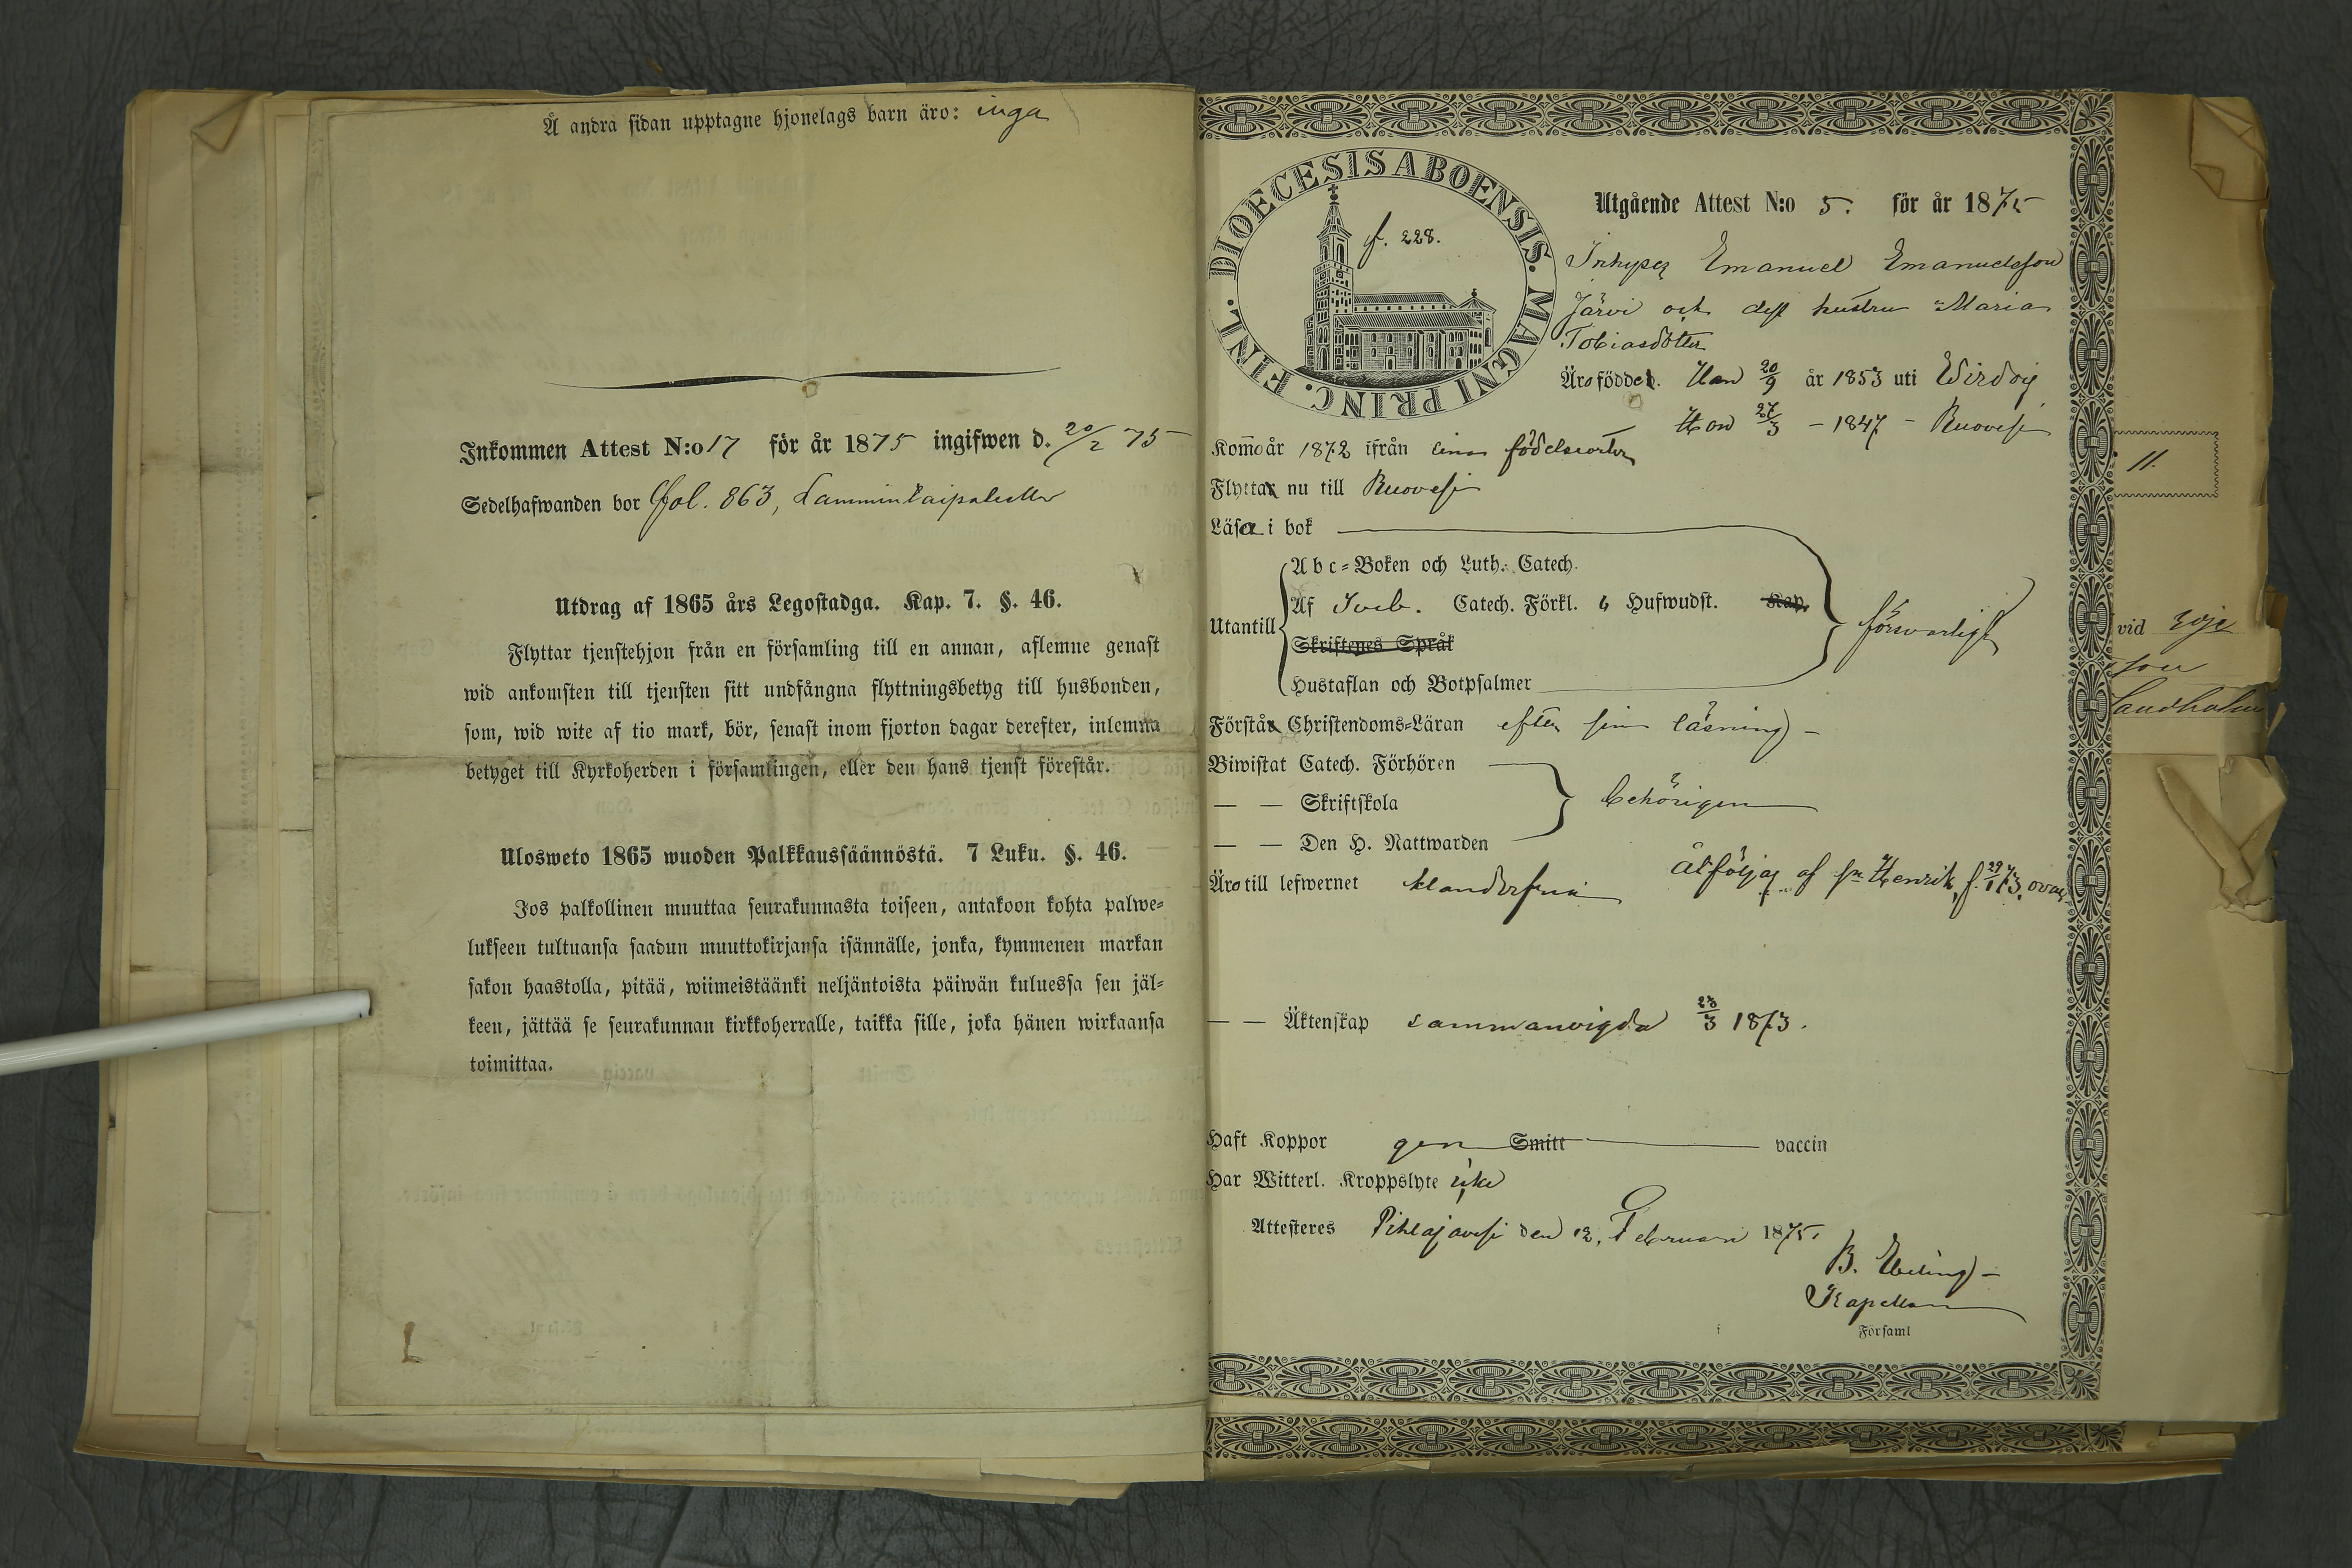 Å andra sidan upptagne hjonelags barn äro: inga
Inkommen Attest N:o 17 för år 1875 ingifwen d. 20/2 75
Sedelhafwanden bor Fol. 863, Lamminkaipalella
Utdrag af 1865 års Legostadga. Kap. 7. §. 46.
Flyttar tjenstehjon från en församling till en annan, aflemne genast
wid ankomsten till tjensten sitt undfångna flyttningsbetyg till husbonden,
som, wid wite af tio mark, bör, senast inom fjorton dagar derefter, inlemna
betyget till Kyrkoherden i församlingen, eller den hans tjenst förestår.
Ulosweto 1865 wuoden Palkkaussäännöstä. 7 Luku. §. 46.
Jos palkollinen muuttaa seurakunnasta toiseen, antakoon kohta palwe-
lukseen tultuansa saadun muuttokirjansa isännälle, jonka, kymmenen markan
sakon haastolla, pitää, wiimeistäänki neljäntoista päiwän kuluessa sen jäl-
keen, jättää se seurakunnan kirkkoherralle, taikka sille, joka hänen wirkaansa
toimittaa.
DIOECESIS ABOENSIS. MAGNI PRINC. FINL.
f. 228.
Utgående Attest N:o 5. för år 1875
Inhyses Emanuel Emanuelsson
Järvi och dess hustru Maria
Tobiasdotter
Äro födde. Han 20/9 år 1853 uti Wirdois
Hon 27/3 - 1847 - Ruovesi
Kommo år 1872 ifrån sina födelseorter
Flytta nu till Ruovesi
Läsa i bok
Abc-Boken och Luth. Catech.
Af Sveb. Catech. Förkl. 4 Hufwudst. Kap.
Utantill
försvarligt
Skriftenes Språk
Hustaflan och Botpsalmer
Förstå Christendoms-Läran efter sin läsning -
Biwistat Catech. Förhören
— — Skriftskola
behörigen
— — Den H. Nattwarden
Äro till lefwernet klanderfria
Åtföljas af sn Henrik, f. 29/1 73, ovac.
— — Äktenskap sammanvigda 23/3 1873.
Haft Koppor gen Smitt vaccin
Har Witterl. Kroppslyte icke
Attesteres Pihlajavesi den 12. Februari 1875.
B. Ebeling -
Kapellan
i Församl
11.
vid